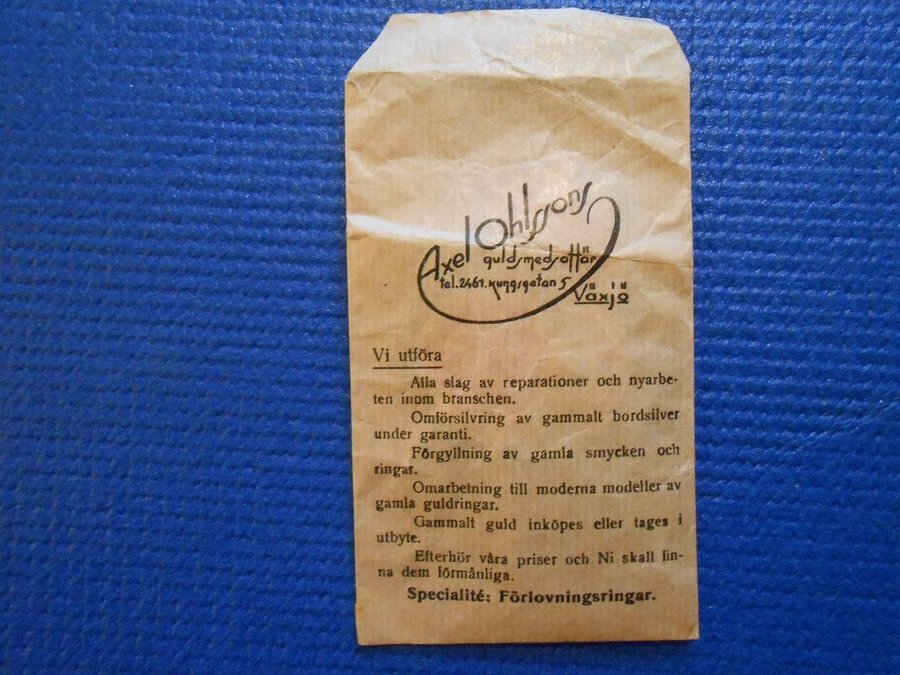 Axel Ohlssons
guldsmedsaffär
tel. 2461. Kungsgatan 5
Växjö
Vi utföra
Alla slag av reparationer och nyarbe-
ten inom branschen.
Omförsilvring av gammalt bordsilver
under garanti.
Förgyllning av gamla smycken och
ringar.
Omarbetning till moderna modeller av
gamla guldringar.
Gammalt guld inköpes eller tages i
utbyte.
Efterhör våra priser och Ni skall fin-
na dem förmånliga.
Specialité: Förlovningsringar.